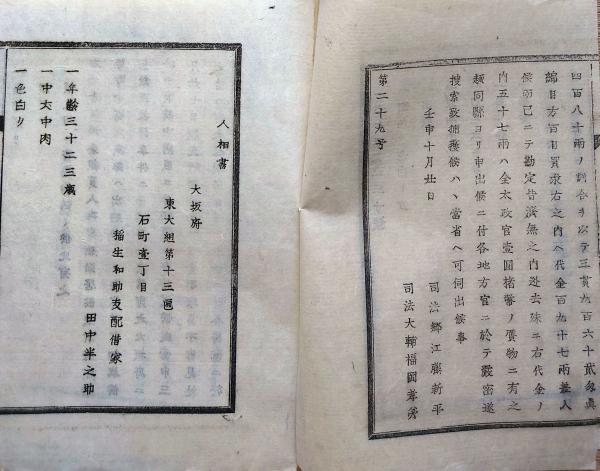 四百八十兩ノ割合ヲ以テ三貫九百六十貳匁眞
綿目方百目買求右之内ヘ代金百九十七兩差入
候而已ニテ勘定皆濟無之内逃去殊ニ右代金ノ
内五十七兩ハ全太政官壹圓楮幣ノ贋物ニ有之
趣同縣ヨリ申出候ニ付各地方官ニ於テ嚴密遂
捜索致捕獲候ハヽ當省ヘ可伺出候事
壬申十月廿日
司法卿江藤新平
司法大輔福岡孝弟
第二十九号
人相書
大坂府
東大組第十三區
石町壹丁目
稲生和助支配借家
田中半之助
一年齢三十二三歳
一中丈中肉
一色白ク